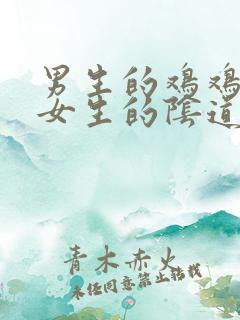 男生的鸡鸡
女生的阴道
青木赤火
未经同意禁止转载